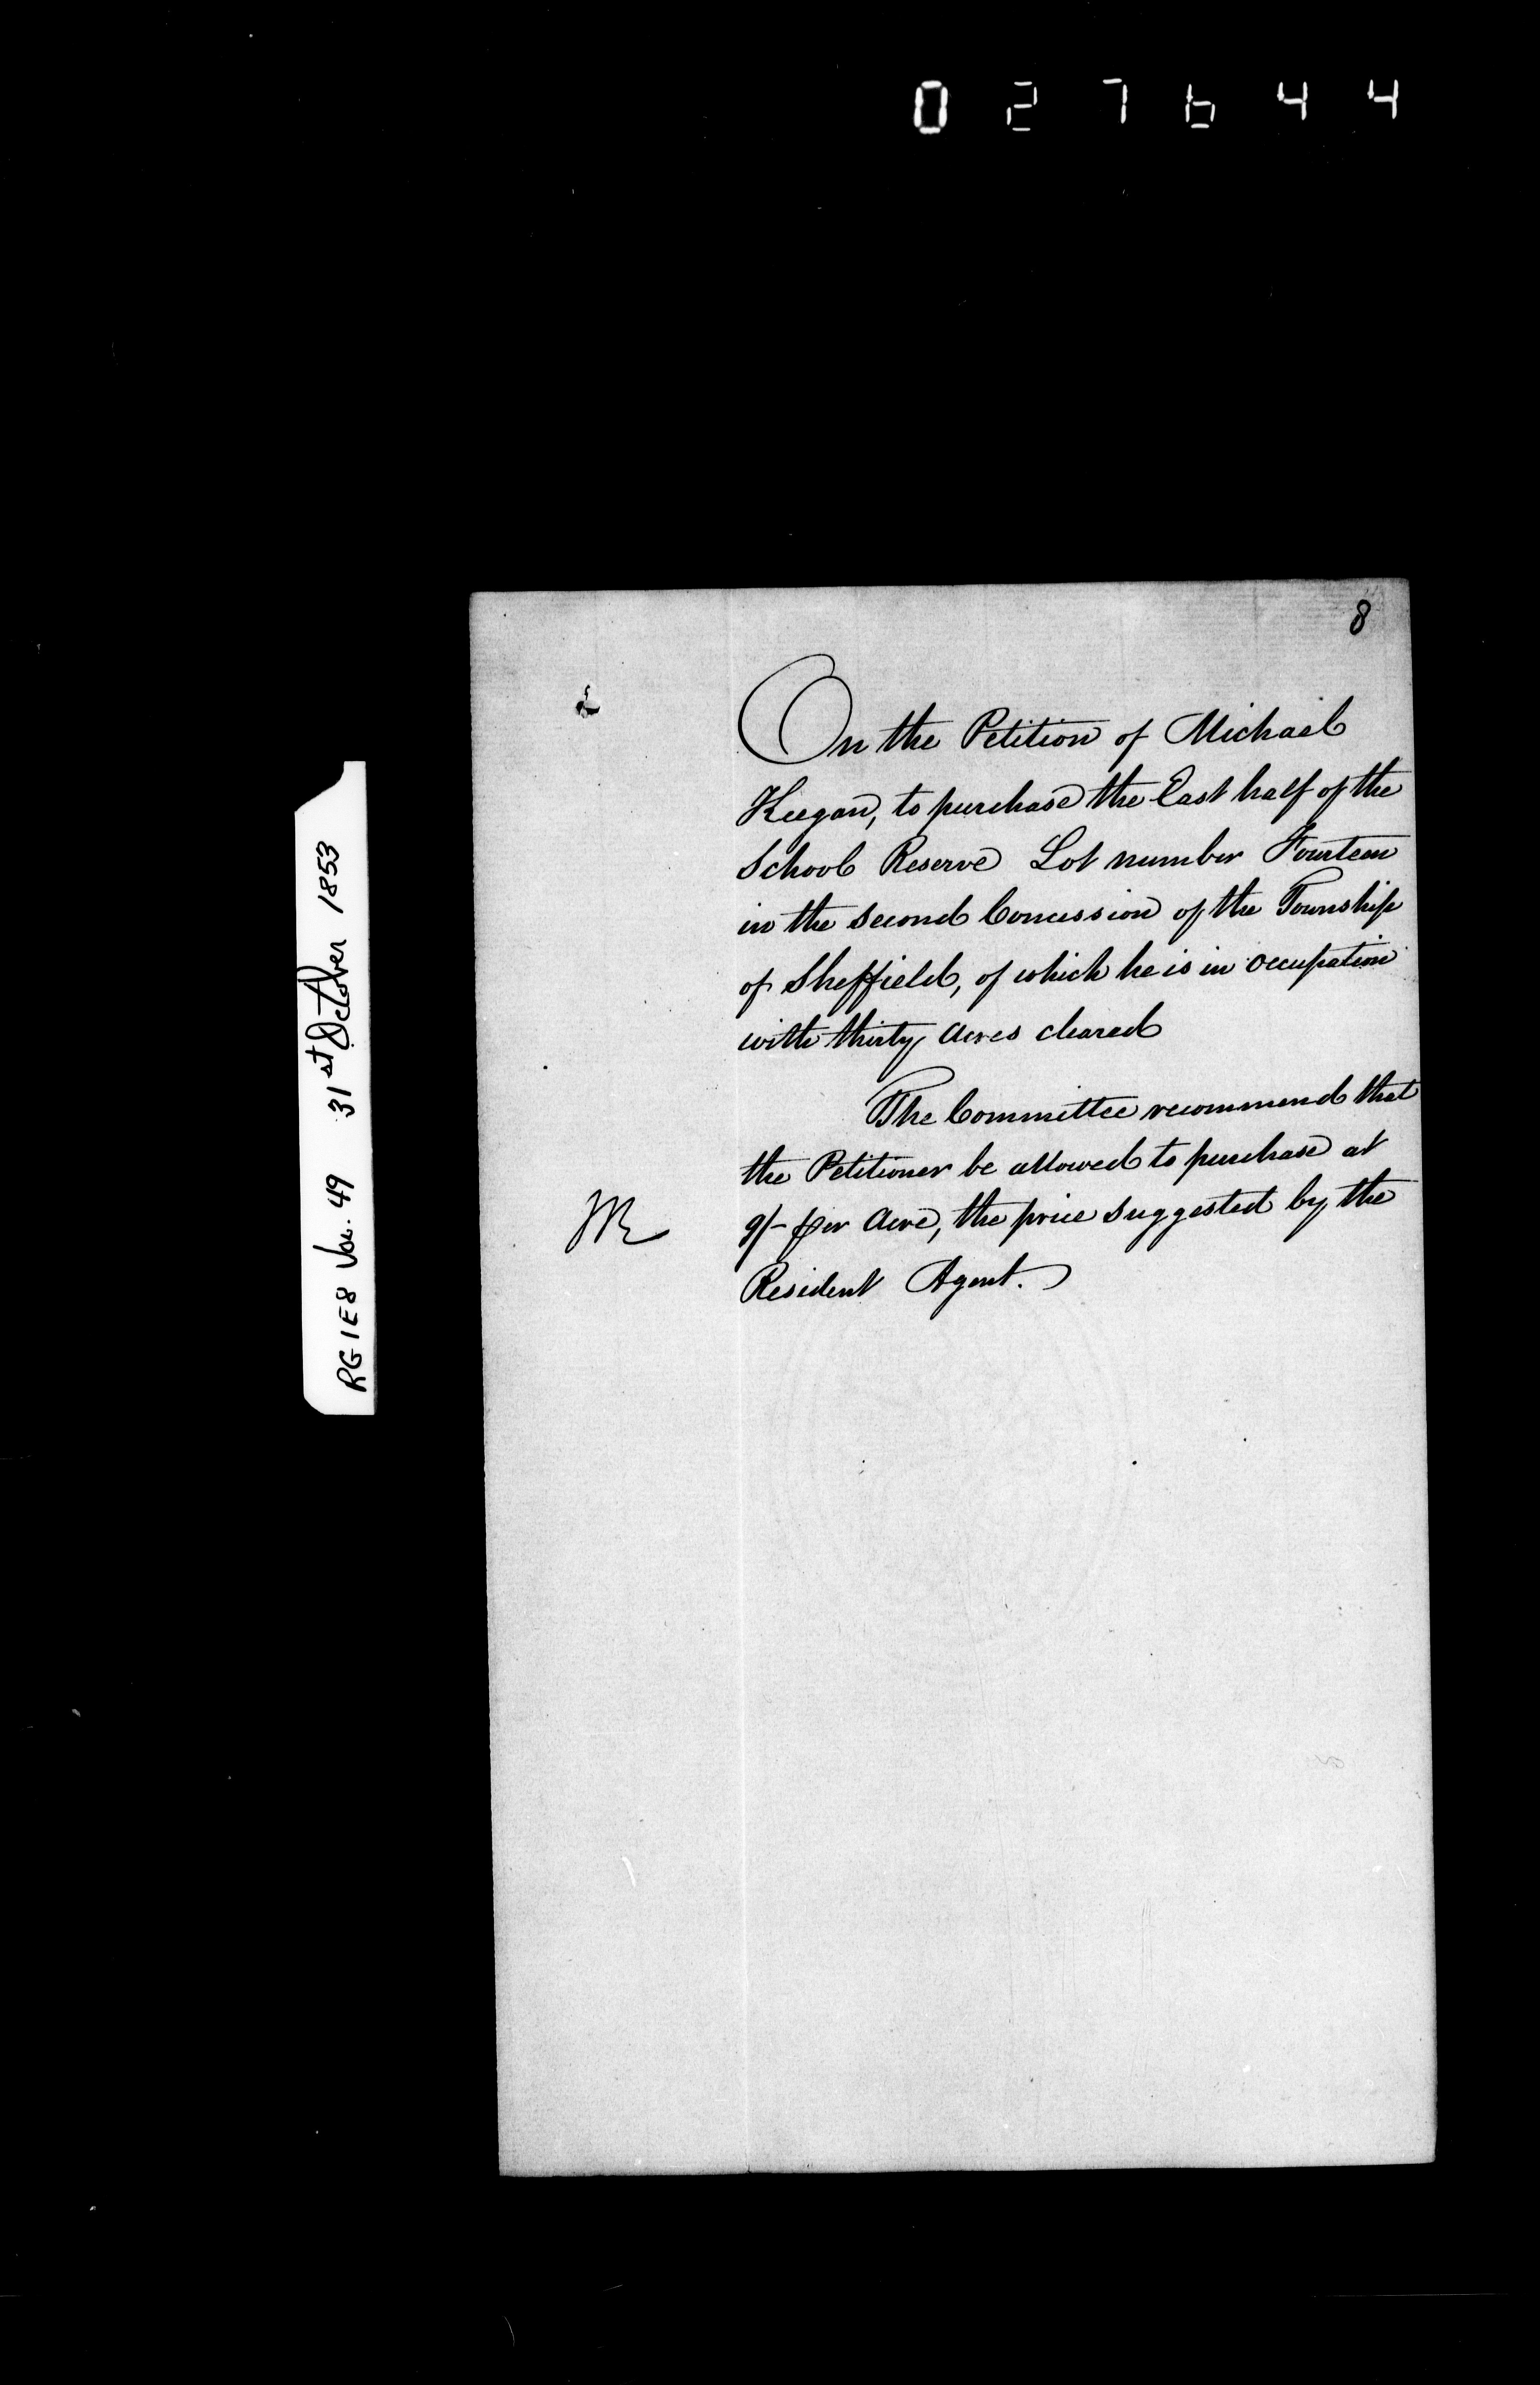 027644
RG 1 E8 Vol. 49 31st October 1853
8
On the Petition of Michael
Keegan, to purchase the East half of the
School Reserve Lot number Fourteen
in the second Concession of the Township
of Sheffield, of which he is in occupation
with thirty acres cleared
The Committee recommend that
the Petitioner be allowed to purchase at
9/- per acre, the price suggested by the
Resident Agent.